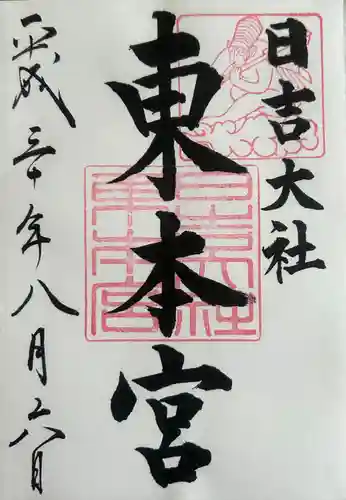 日吉大社
東本宮
平成三十年八月六日
日吉社
東本宮